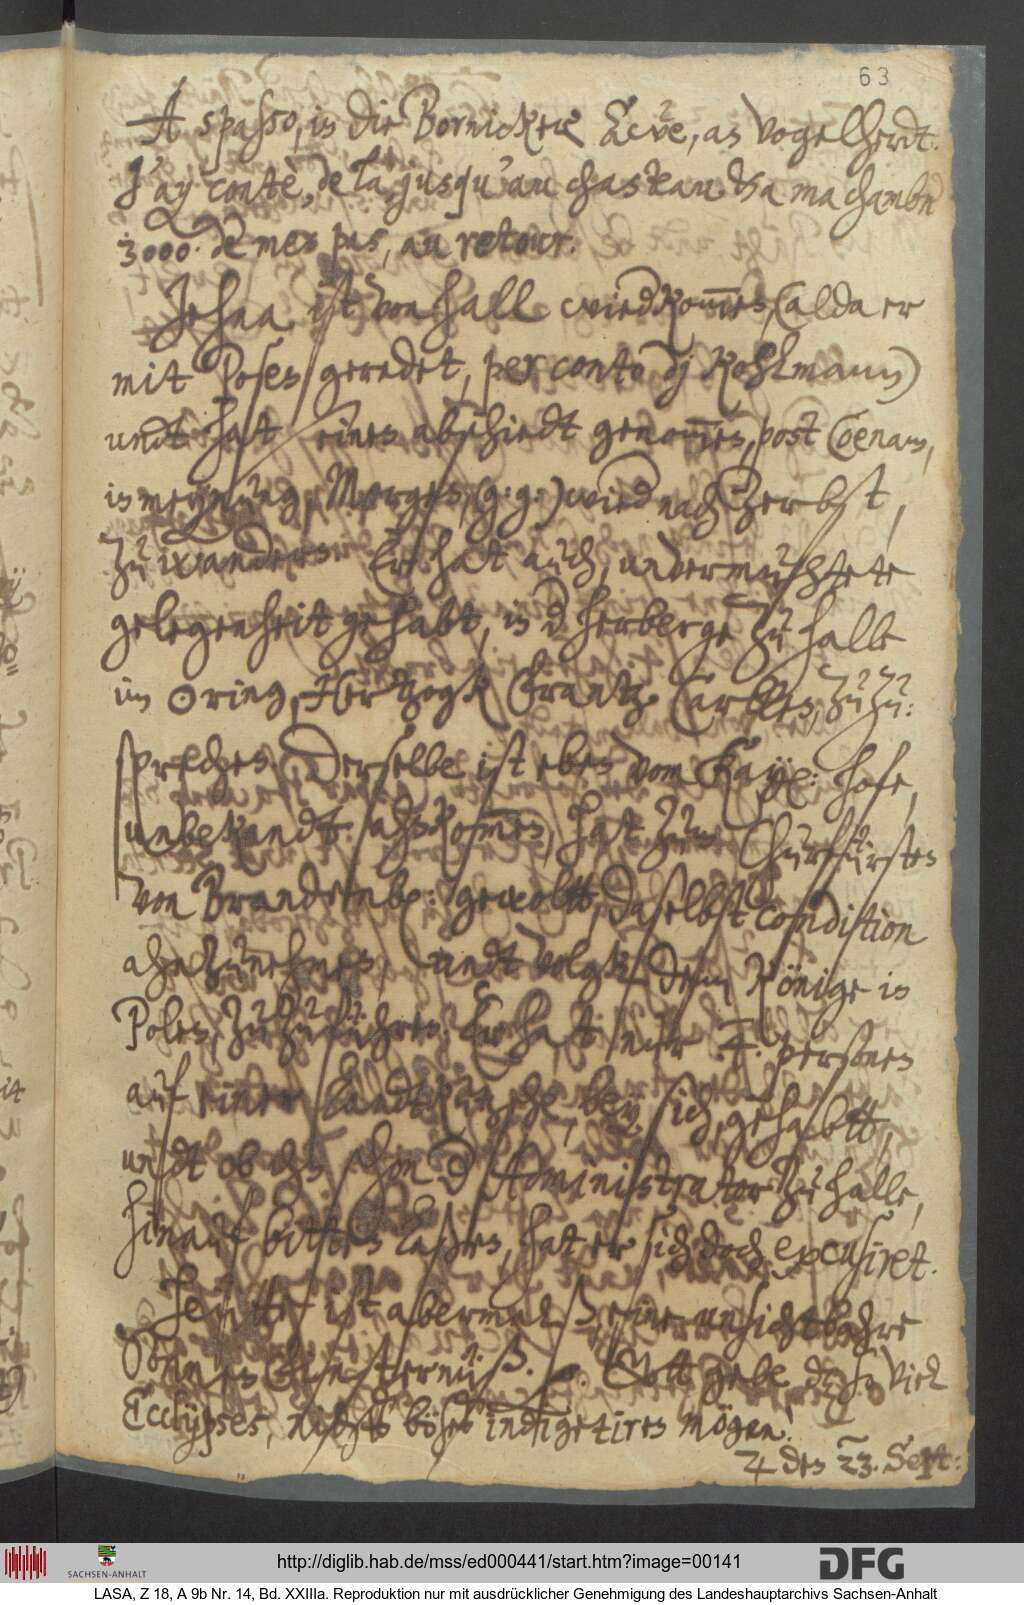 63
A spasso, in die Bornicker Ecke, an Vogelherdt.
J'ay contè, de là jusqu'au chasteau dsa ma chambre
3000. de mes pas, au retour.
Jehna ist von Hall wiedkom̅en, (alda er
mit Posen geredet, per conto dj Kohlmann)
undt hat einen abschiedt genom̅en, post Coenam,
in meynung, Morgen, (g: g:) wied nach Zerbst,
zu wandern. Er hat auch, unvermuhtete
gelegenheit gehabt, in d herberge zu Halle
im ring, Hertzogk Frantz Carlln, zuzu:
sprechen. Derselbe ist eben vom Kayß: hofe,
unbekandt. ahnkom̅en, hat zum Churfürsten
von Brandenb: gewoltt, daselbst condition
ahnzunehmen, undt volgk, dem Könige in
Polen, zuzuführen. Er hat nur 4. personen
auf einer Landtkutzsche, bey sich, gehabtt,
undt ob ihn schon d Administrator zu Halle,
hinauf bitten laßen, hat er sich doch excusiret.
Heutte ist abermal eine unsichtbahre
Sonnen Finsternüß. Gott gebe daß so viel
Ecclypsen, nichts böses indigetiren mögen!
♃ den 23. Sept:
SACHSEN-ANHALT
http://diglib.hab.de/mss/ed000441/start.htm?image=00141
DFG
LASA, Z 18, A 9b Nr. 14, Bd. XXIIIa. Reproduktion nur mit ausdrücklicher Genehmigung des Landeshauptarchivs Sachsen-Anhalt